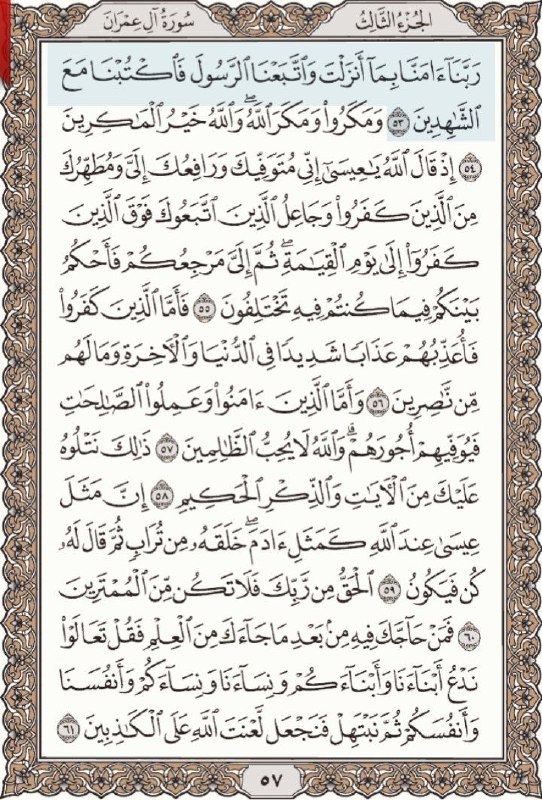 سُورَةُ آلِ عِمْرَانَ
الجُزْءُ الثَّالِثُ
رَبَّنَآ ءَامَنَّا بِمَآ أَنزَلْتَ وَٱتَّبَعْنَا ٱلرَّسُولَ فَٱكْتُبْنَا مَعَ
ٱلشَّٰهِدِينَ ٥٣ وَمَكَرُوا۟ وَمَكَرَ ٱللَّهُ ۖ وَٱللَّهُ خَيْرُ ٱلْمَٰكِرِينَ
٥٤ إِذْ قَالَ ٱللَّهُ يَٰعِيسَىٰٓ إِنِّى مُتَوَفِّيكَ وَرَافِعُكَ إِلَىَّ وَمُطَهِّرُكَ
مِنَ ٱلَّذِينَ كَفَرُوا۟ وَجَاعِلُ ٱلَّذِينَ ٱتَّبَعُوكَ فَوْقَ ٱلَّذِينَ
كَفَرُوٓا۟ إِلَىٰ يَوْمِ ٱلْقِيَٰمَةِ ۖ ثُمَّ إِلَىَّ مَرْجِعُكُمْ فَأَحْكُمُ
بَيْنَكُمْ فِيمَا كُنتُمْ فِيهِ تَخْتَلِفُونَ ٥٥ فَأَمَّا ٱلَّذِينَ كَفَرُوا۟
فَأُعَذِّبُهُمْ عَذَابًا شَدِيدًا فِى ٱلدُّنْيَا وَٱلْءَاخِرَةِ وَمَا لَهُم
مِّن نَّٰصِرِينَ ٥٦ وَأَمَّا ٱلَّذِينَ ءَامَنُوا۟ وَعَمِلُوا۟ ٱلصَّٰلِحَٰتِ
فَيُوَفِّيهِمْ أُجُورَهُمْ ۗ وَٱللَّهُ لَا يُحِبُّ ٱلظَّٰلِمِينَ ٥٧ ذَٰلِكَ نَتْلُوهُ
عَلَيْكَ مِنَ ٱلْءَايَٰتِ وَٱلذِّكْرِ ٱلْحَكِيمِ ٥٨ إِنَّ مَثَلَ
عِيسَىٰ عِندَ ٱللَّهِ كَمَثَلِ ءَادَمَ ۖ خَلَقَهُۥ مِن تُرَابٍ ثُمَّ قَالَ لَهُۥ
كُن فَيَكُونُ ٥٩ ٱلْحَقُّ مِن رَّبِّكَ فَلَا تَكُن مِّنَ ٱلْمُمْتَرِينَ
٦٠ فَمَنْ حَآجَّكَ فِيهِ مِنۢ بَعْدِ مَا جَآءَكَ مِنَ ٱلْعِلْمِ فَقُلْ تَعَالَوْا۟
نَدْعُ أَبْنَآءَنَا وَأَبْنَآءَكُمْ وَنِسَآءَنَا وَنِسَآءَكُمْ وَأَنفُسَنَا
وَأَنفُسَكُمْ ثُمَّ نَبْتَهِلْ فَنَجْعَل لَّعْنَتَ ٱللَّهِ عَلَى ٱلْكَٰذِبِينَ ٦١
٥٧